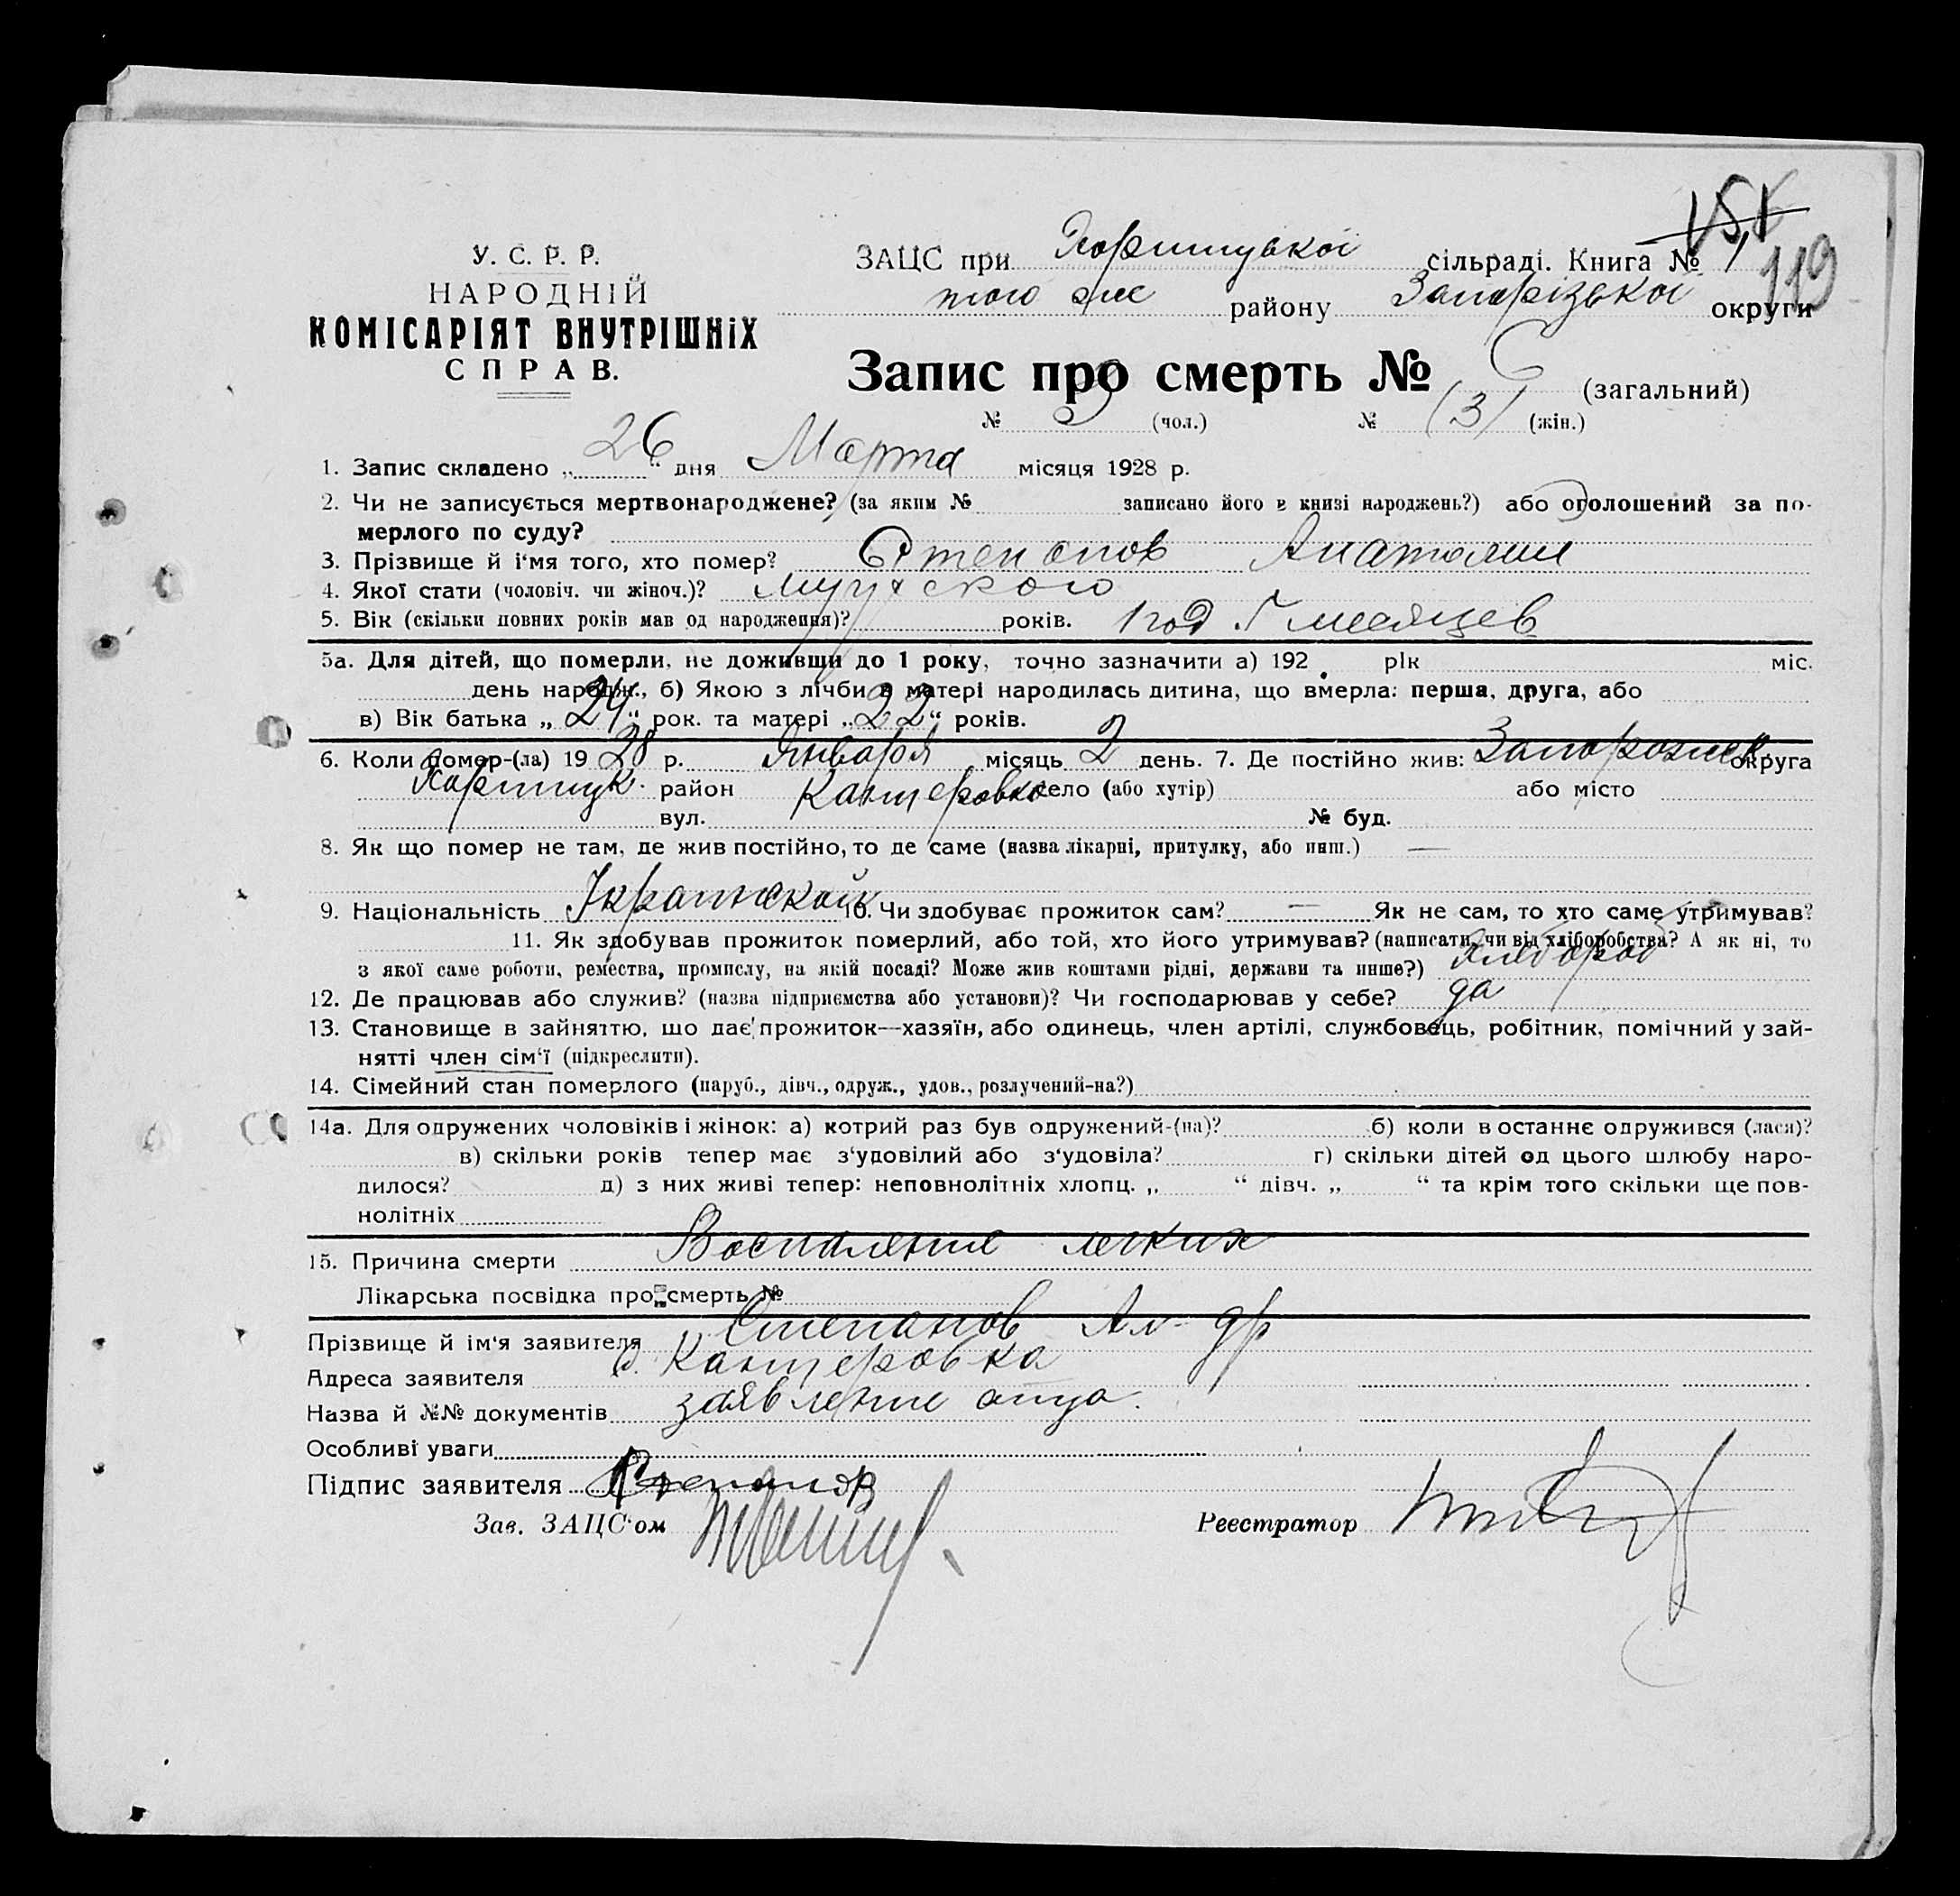 119
У. С. Р. Р.
НАРОДНІЙ
КОМІСАРІЯТ ВНУТРІШНІХ
СПРАВ.
ЗАЦС при Хортицької сільраді. Книга № 1
того же району Запорізької округи
Запис про смерть № 6 (загальний)
№ 3 (чол.) № (3) (жін.)
1. Запис складено „26“ дня Марта місяця 1928 р.
2. Чи не записується мертвонароджене? (за яким № записано його в книзі народжень?) або оголошений за по-
мерлого по суду?
3. Прізвище й і'мя того, хто помер? Степанов Анатолий
4. Якої стати (чоловіч. чи жіноч.)? мужского
5. Вік (скільки повних років мав од народження)? років. 1 год месяцев
5а. Для дітей, що померли, не доживши до 1 року, точно зазначити а) 192 рік міс.
день народж., б) Якою з лічби в матері народилась дитина, що вмерла: перша, друга, або
в) Вік батька „24“ рок. та матері „22“ років.
6. Коли помер-(ла) 1928 р. Января місяць 2 день. 7. Де постійно жив: Запорожск округа
Хортицк. район Канцеровка село (або хутір) або місто
вул. № буд.
8. Як що помер не там, де жив постійно, то де саме (назва лікарні, притулку, або инш.) —
9. Національність Украинской 10. Чи здобуває прожиток сам? — Як не сам, то хто саме утримував?
11. Як здобував прожиток померлий, або той, хто його утримував? (написати, чи від хліборобства? А як ні, то
з якої саме роботи, ремества, промислу, на якій посаді? Може жив коштами рідні, держави та инше?) хлебороб
12. Де працював або служив? (назва підприємства або установи)? Чи господарював у себе? да
13. Становище в зайняттю, що дає прожиток—хазяїн, або одинець, член артілі, службовець, робітник, помічний у зай-
нятті член сім'ї (підкреслити).
14. Сімейний стан померлого (паруб., дівч., одруж., удов., розлучений-на?)
14а. Для одружених чоловіків і жінок: а) котрий раз був одружений-(на)? б) коли в останнє одружився (лася)?
в) скільки років тепер має з'удовілий або з'удовіла? г) скільки дітей од цього шлюбу наро-
дилося? д) з них живі тепер: неповнолітніх хлопц. „ “ дівч. „ “ та крім того скільки ще пов-
нолітніх
15. Причина смерти Воспаление легких
Лікарська посвідка про смерть №
Прізвище й ім'я заявителя Степанов Ал-др
Адреса заявителя с. Канцеровка
Назва й №№ документів заявление отца.
Особливі уваги
Підпис заявителя Степанов
Зав. ЗАЦС'ом
Реєстратор